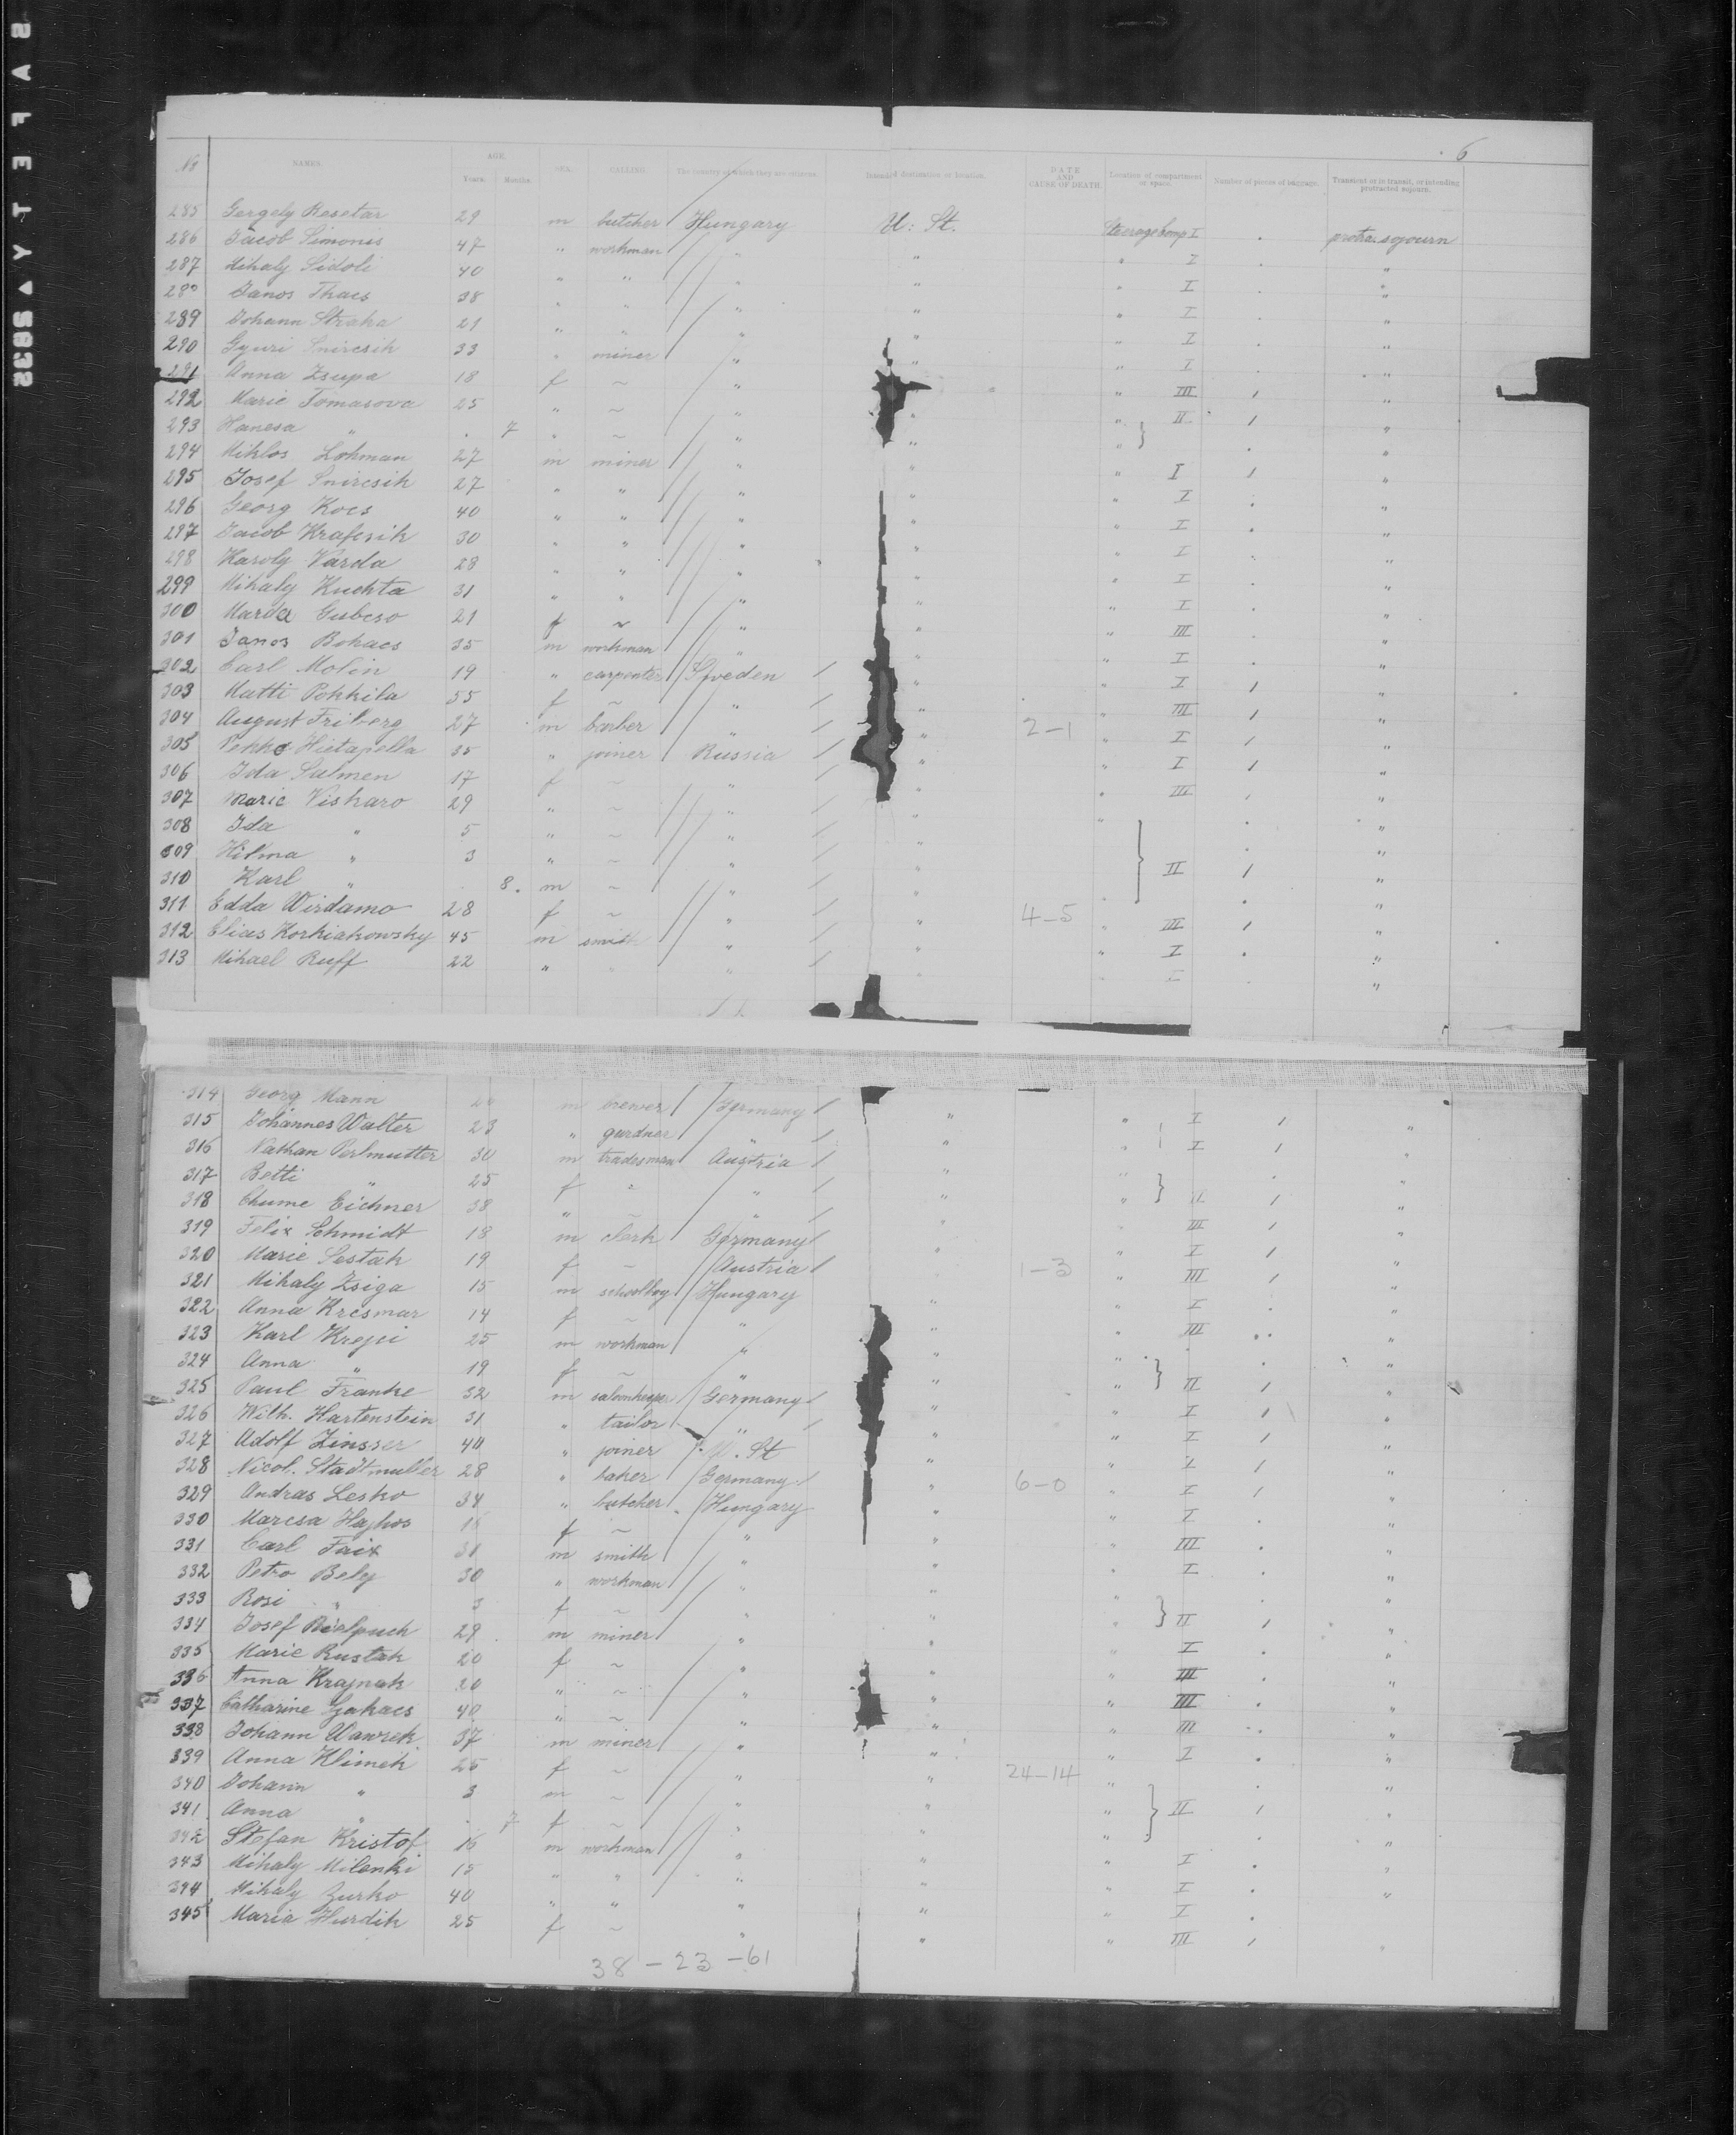 SAFETY ▲ 5835
6
No NAMES. AGE. Years. Months. SEX. CALLING. The country of which they are citizens. Intended destination or location. DATE AND CAUSE OF DEATH. Location of compartment or space. Number of pieces of baggage. Transient or in transit, or intending protracted sojourn.
285 Gergely Resetar 29 m butcher Hungary U: St. Steerage Comp I protra. sojourn
286 Jacob Simonis 47 " workman " " " I "
287 Mihaly Sidoli 40 " " " " " I "
28 Janos Thacs 38 " " " " " I "
289 Johann Straka 21 " " " " " I "
290 Gyuri Snircsik 33 " miner " " " I "
291 Anna Zsupa 18 f ~ " " III 1 "
292 Marie Tomasova 25 " ~ " " " II 1 "
293 Hanesa " 7 " ~ " " " "
294 Miklos Lohman 27 m miner " " " I 1 "
295 Josef Snircsik 27 " " " " " I "
296 Georg Kocs 40 " " " " " I "
297 Jacob Krafcsik 30 " " " " " I "
298 Karoly Varda 28 " " " " " I "
299 Mihaly Kuchta 31 " " " " " I "
300 Marda Gubcso 21 f ~ " " " III "
301 Janos Bohacs 35 m workman " " " I "
302 Carl Molin 19 " carpenter Sweden " " I 1 "
303 Matti Pokkila 55 f ~ " " " III 1 "
304 August Friberg 27 m barber " " 2-1 " I 1 "
305 Pekka Hietapella 35 " joiner Russia " " I 1 "
306 Ida Salmen 17 f ~ " " " III 1 "
307 Marie Visharo 29 " ~ " " " "
308 Ida " 5 " ~ " " "
309 Hilma " 3 " ~ " " II 1 "
310 Karl " 8 m ~ " " "
311 Edda Wirdamo 28 f ~ " " 4-5 " III 1 "
312 Elias Korkiakowsky 45 m smith " " " I "
313 Mihael Ruff 22 " " " " I "
314 Georg Mann m brewer Germany " " I 1 "
315 Johannes Walter 23 " gardner " " " I 1 "
316 Nathan Perlmutter 30 m tradesman Austria " " "
317 Betti " 25 f " " " " II 1 "
318 Chume Eichner 38 " ~ " " " III 1 "
319 Felix Schmidt 18 m clerk Germany " " I 1 "
320 Marie Sestak 19 f ~ Austria 1-3 " III 1 "
321 Mihaly Zsiga 15 m schoolboy Hungary " " I "
322 Anna Kresmar 14 f ~ " " " III "
323 Karl Krejci 25 m workman " " " "
324 Anna " 19 f ~ " " " II 1 "
325 Paul Franke 32 m saloonkeeper Germany " " I 1 "
326 Wilh. Hartenstein 31 " tailor " " " I 1 "
327 Adolf Zinsser 40 " joiner U. St " " I 1 "
328 Nicol. Stadtmuller 28 " baker Germany " 6-0 " I 1 "
329 Andras Lesko 34 " butcher Hungary " " I "
330 Marcsa Hajhos f ~ " " " III "
331 Carl Faix 31 m smith " " " I "
332 Petro Bely 30 " workman " " " "
333 Rosi " 3 f ~ " " " II 1 "
334 Josef 29 m miner " " " I "
335 Marie Rustak 20 f ~ " " " III "
336 Anna Krajnak 20 " ~ " " " III "
337 Catharine 40 " ~ " " " III "
338 Johann Wawrek 37 m miner " " " I "
339 Anna Klimek 25 f ~ " " 24-14 " "
340 Johann " 3 m ~ " " " II 1 "
341 Anna " 7 f ~ " " " "
342 Stefan Kristof 16 m workman " " " I "
343 Mihaly Milenki 15 " " " " " I "
344 Mihaly Zurko 40 " " " " " I
345 Maria Hurdik 25 f ~ " " " III 1 "
38 - 23 - 61